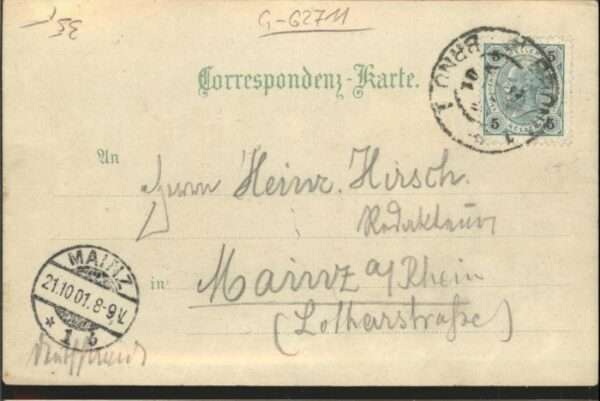 G-62711
Correspondenz-Karte.
BRNO 1
5 5
An
Herrn Heinr. Hirsch.
Redakteur
MAINZ
21.10.01.8-9V.
in
Mainz a/Rhein
(Lotharstraße)
Deutschland